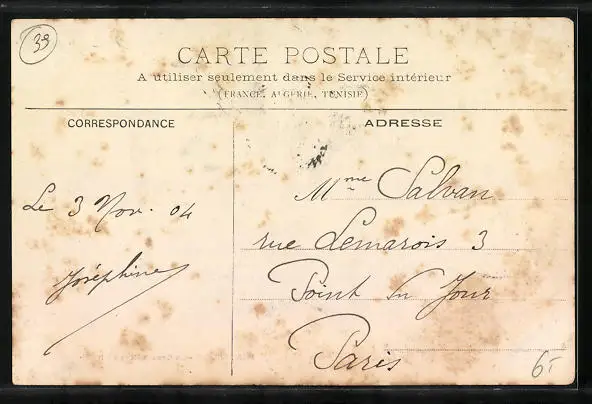 39
CARTE POSTALE
A utiliser seulement dans le Service intérieur
(FRANCE, ALGERIE, TUNISIE)
CORRESPONDANCE
ADRESSE
Le 3 Nov. 04
Joséphine
Mme Salvan
rue Lemarois 3
Point du Jour
Paris
6